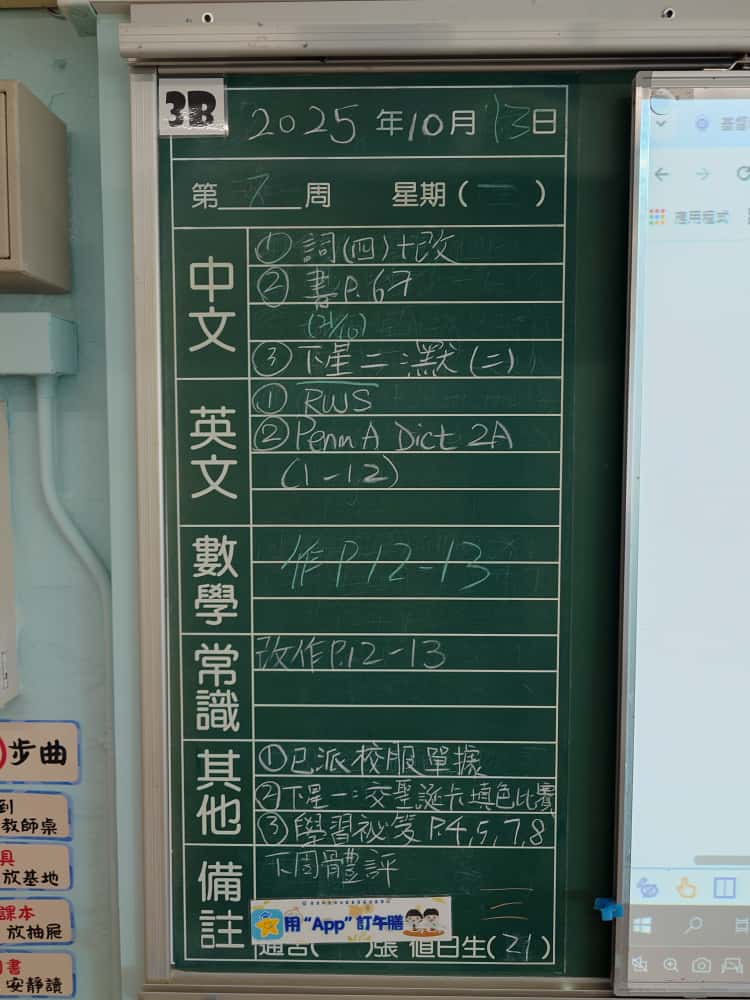 3B
2025 年 10 月 13 日
第 7 周 星期 ( 一 )
中文
① 詞(四)+改
② 書P.67
(21/10)
③ 下星二：默(二)
英文
① RWS
② Penm A Dict 2A
(1-12)
數學
作P.12-13
常識
改作P.12-13
其他
① 已派校服單據
② 下星一：交聖誕卡填色比賽
③ 學習祕笈 P.4,5,7,8
備註
下周體評
用 “App” 訂午膳
張 值日生( 21 )
步曲
到
教師桌
具
放基地
課本
放抽屜
書
安靜讀
應用程式